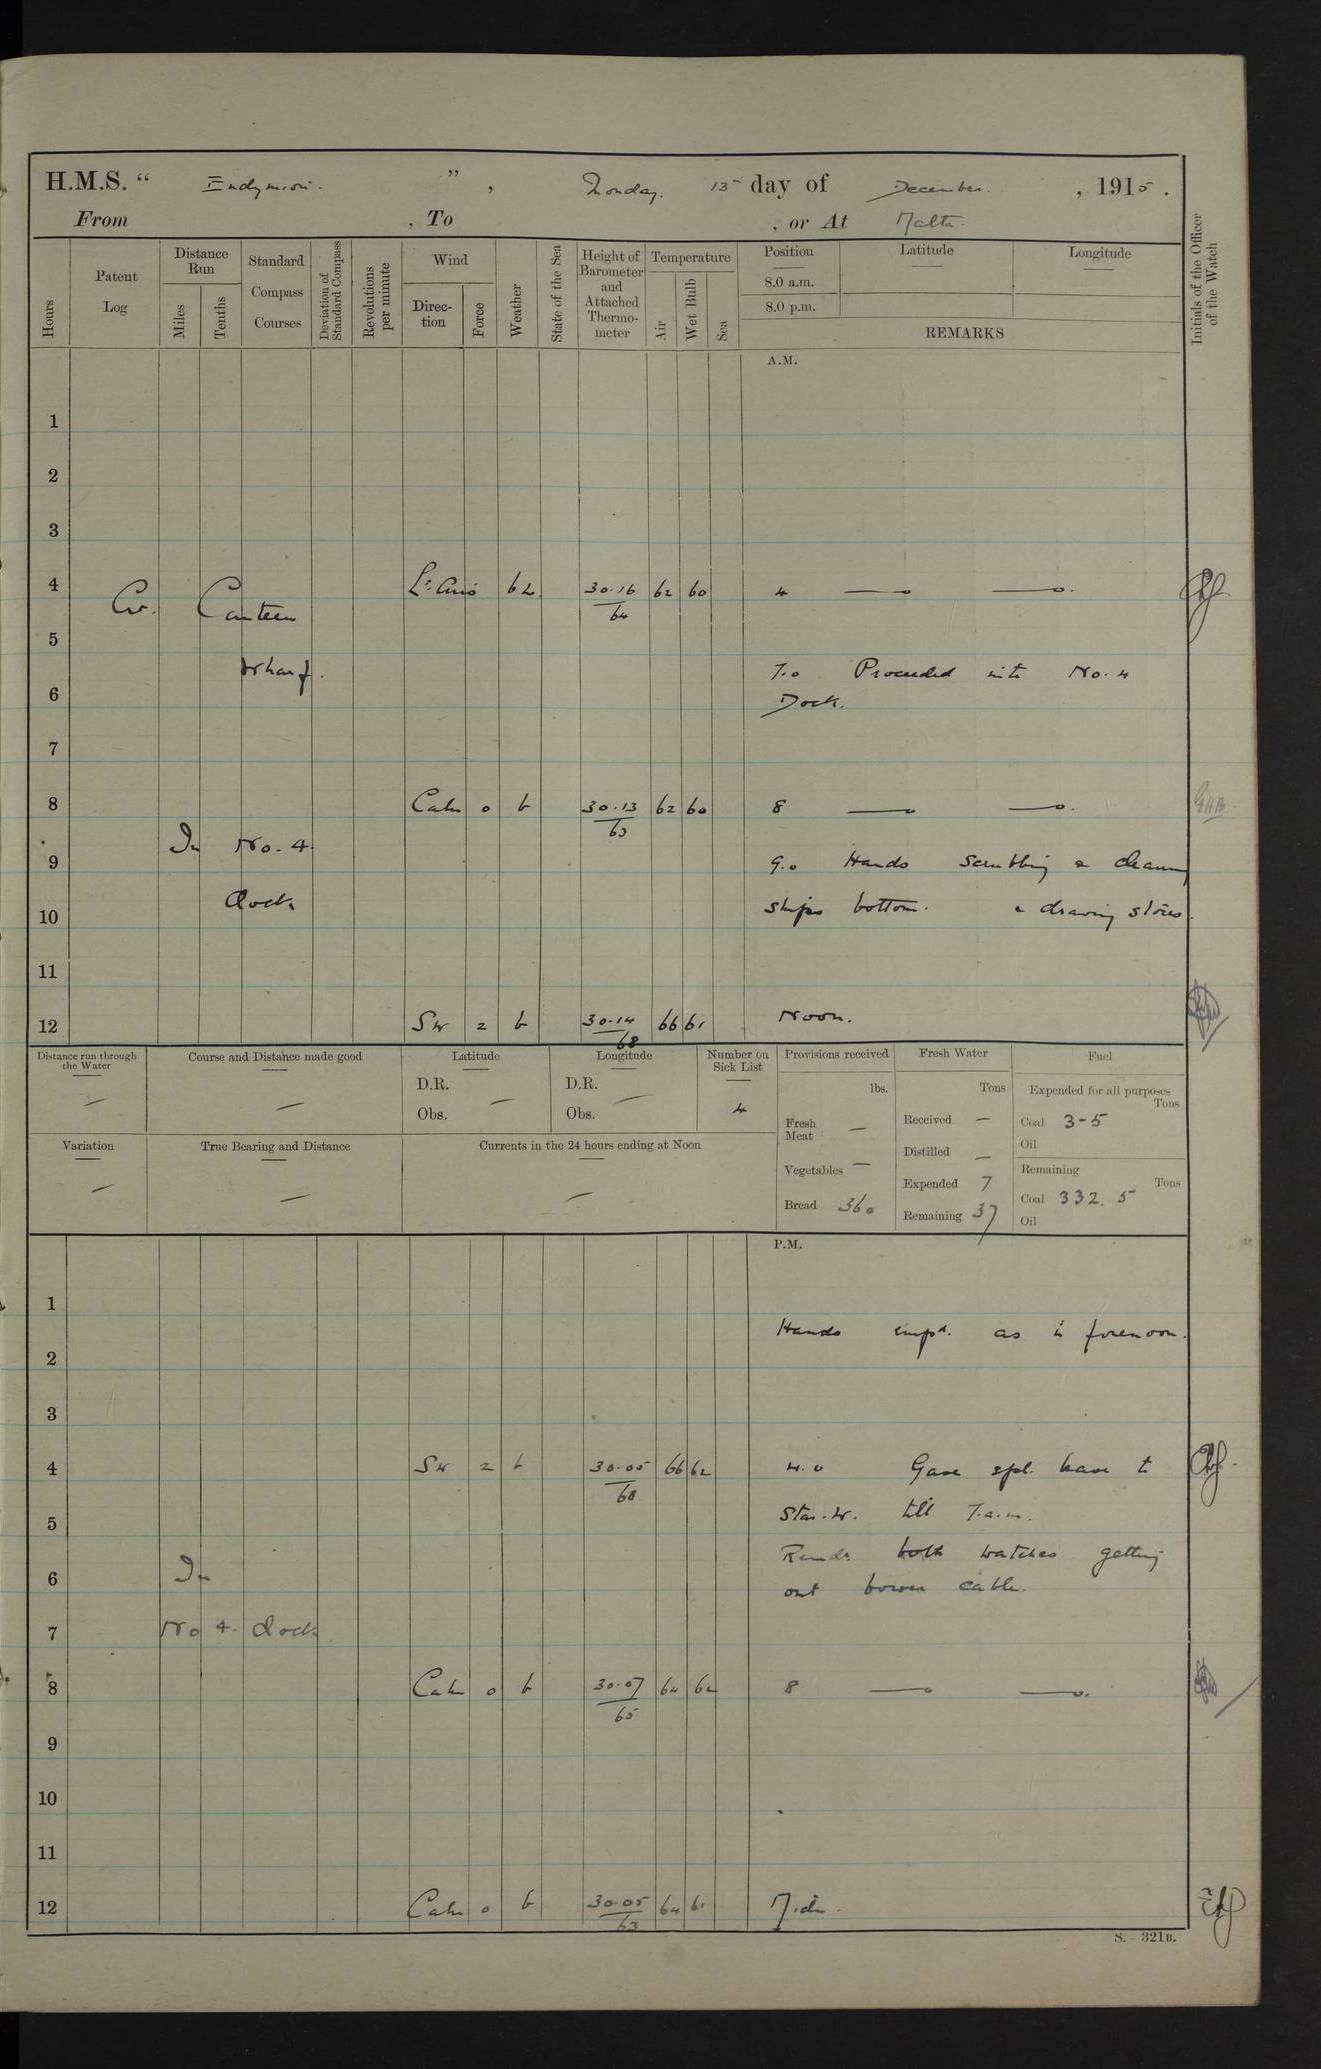 H.M.S. " Endymion. " , Monday. 13 day of December. , 1915.
From , To , or At Malta.
Hours
Patent Log
Distance Run
Miles
Tenths
Standard Compass Courses
Deviation of Standard Compass
Revolutions per minute
Wind
Direction
Force
Weather
State of the Sea
Height of Barometer and Attached Thermometer
Temperature
Air
Wet Bulb
Sea
Position
Latitude
Longitude
8.0 a.m.
8.0 p.m.
REMARKS
Initials of the Officer of the Watch
A.M.
1
2
3
4 Lt. Airs 30.16 62 60 4
64
Canteen
5
Wharf.
7.0 Proceeded into No. 4
6
Dock.
7
8 Calm 0 b 30.13 62 60 8 G.H.B.
63
In No. 4
9 9.0 Hands Scrubbing & cleaning
dock
10 ships bottom. & drawing stores.
11
12 SW 2 b 30.14 66 61 Noon.
68
Distance run through the Water
Course and Distance made good
Latitude
D.R. —
Obs.
Longitude
D.R. —
Obs.
Number on Sick List
4
Variation
True Bearing and Distance
Currents in the 24 hours ending at Noon
Provisions received
lbs.
Fresh Meat —
Vegetables —
Bread 360
Fresh Water
Tons
Received —
Distilled —
Expended 7
Remaining 37
Fuel
Expended for all purposes
Tons
Coal 3-5
Oil
Remaining
Tons
Coal 332.5
Oil
P.M.
1
Hands empd. as in forenoon.
2
3
4 SW 2 b 30.05 66 62 4.0 Gave spl. leave to
68
Star. W. till 7 a.m.
5
Remdr. both watches getting
6 In
out bower cable.
7 No 4. dock
8 Calm 0 b 30.07 64 62 8
65
9
10
11
12 Calm 0 b 30.05 64 61 Midn.
63
S.—321B.